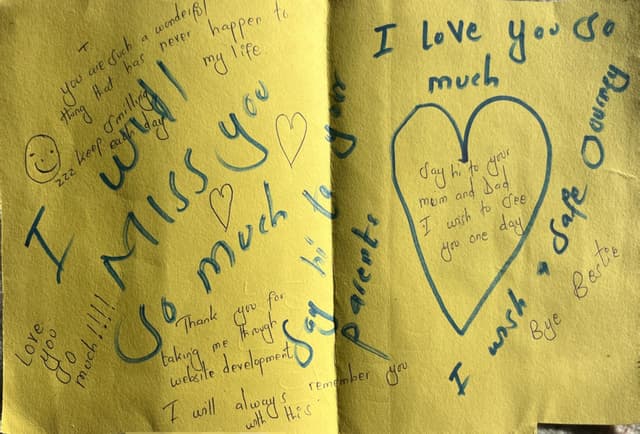 I
you are such a wonderful
thing that has never happen to
my life.
Smilling
zzz keep each day
I will
MISS you
so much
Love
you
so
much!!!!
Thank you for
taking me through
website development
I will always remember you
with this
Say hi to your
parents
I love you so
much
Say hi to your
mom and Dad
I wish to see
you one day
I wish a safe Journey
Bye Bestie